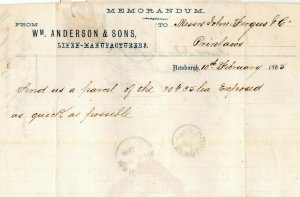 MEMORANDUM.
FROM
WM. ANDERSON & SONS,
LINEN-MANUFACTURERS.
TO Messrs John Fergus & Co
Prinlaws
Newburgh, 10th February 1885
Send us a parcel of the 30 & 35 lea Exposed
as quick as possible